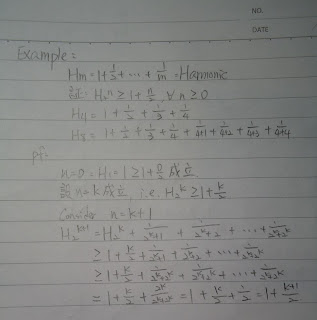 NO.
DATE
Example:
Hm = 1 + 1/2 + ... + 1/m = Harmonic
証: H2^n ≥ 1 + n/2, ∀ n ≥ 0
H4 = 1 + 1/2 + 1/3 + 1/4
H8 = 1 + 1/2 + 1/3 + 1/4 + 1/4+1 + 1/4+2 + 1/4+3 + 1/4+4
pf:
n=0 = H1 = 1 ≥ 1 + 0/2 成立
設 n=k 成立, i.e. H2^k ≥ 1 + k/2
Consider n=k+1
H2^k+1 = H2^k + 1/2^k+1 + 1/2^k+2 + ... + 1/2^k+2^k
≥ 1 + k/2 + 1/2^k+1 + 1/2^k+2 + ... + 1/2^k+2^k
≥ 1 + k/2 + 1/2^k+2^k + 1/2^k+2^k + ... + 1/2^k+2^k
= 1 + k/2 + 2^k/2^k+2^k = 1 + k/2 + 1/2 = 1 + k+1/2